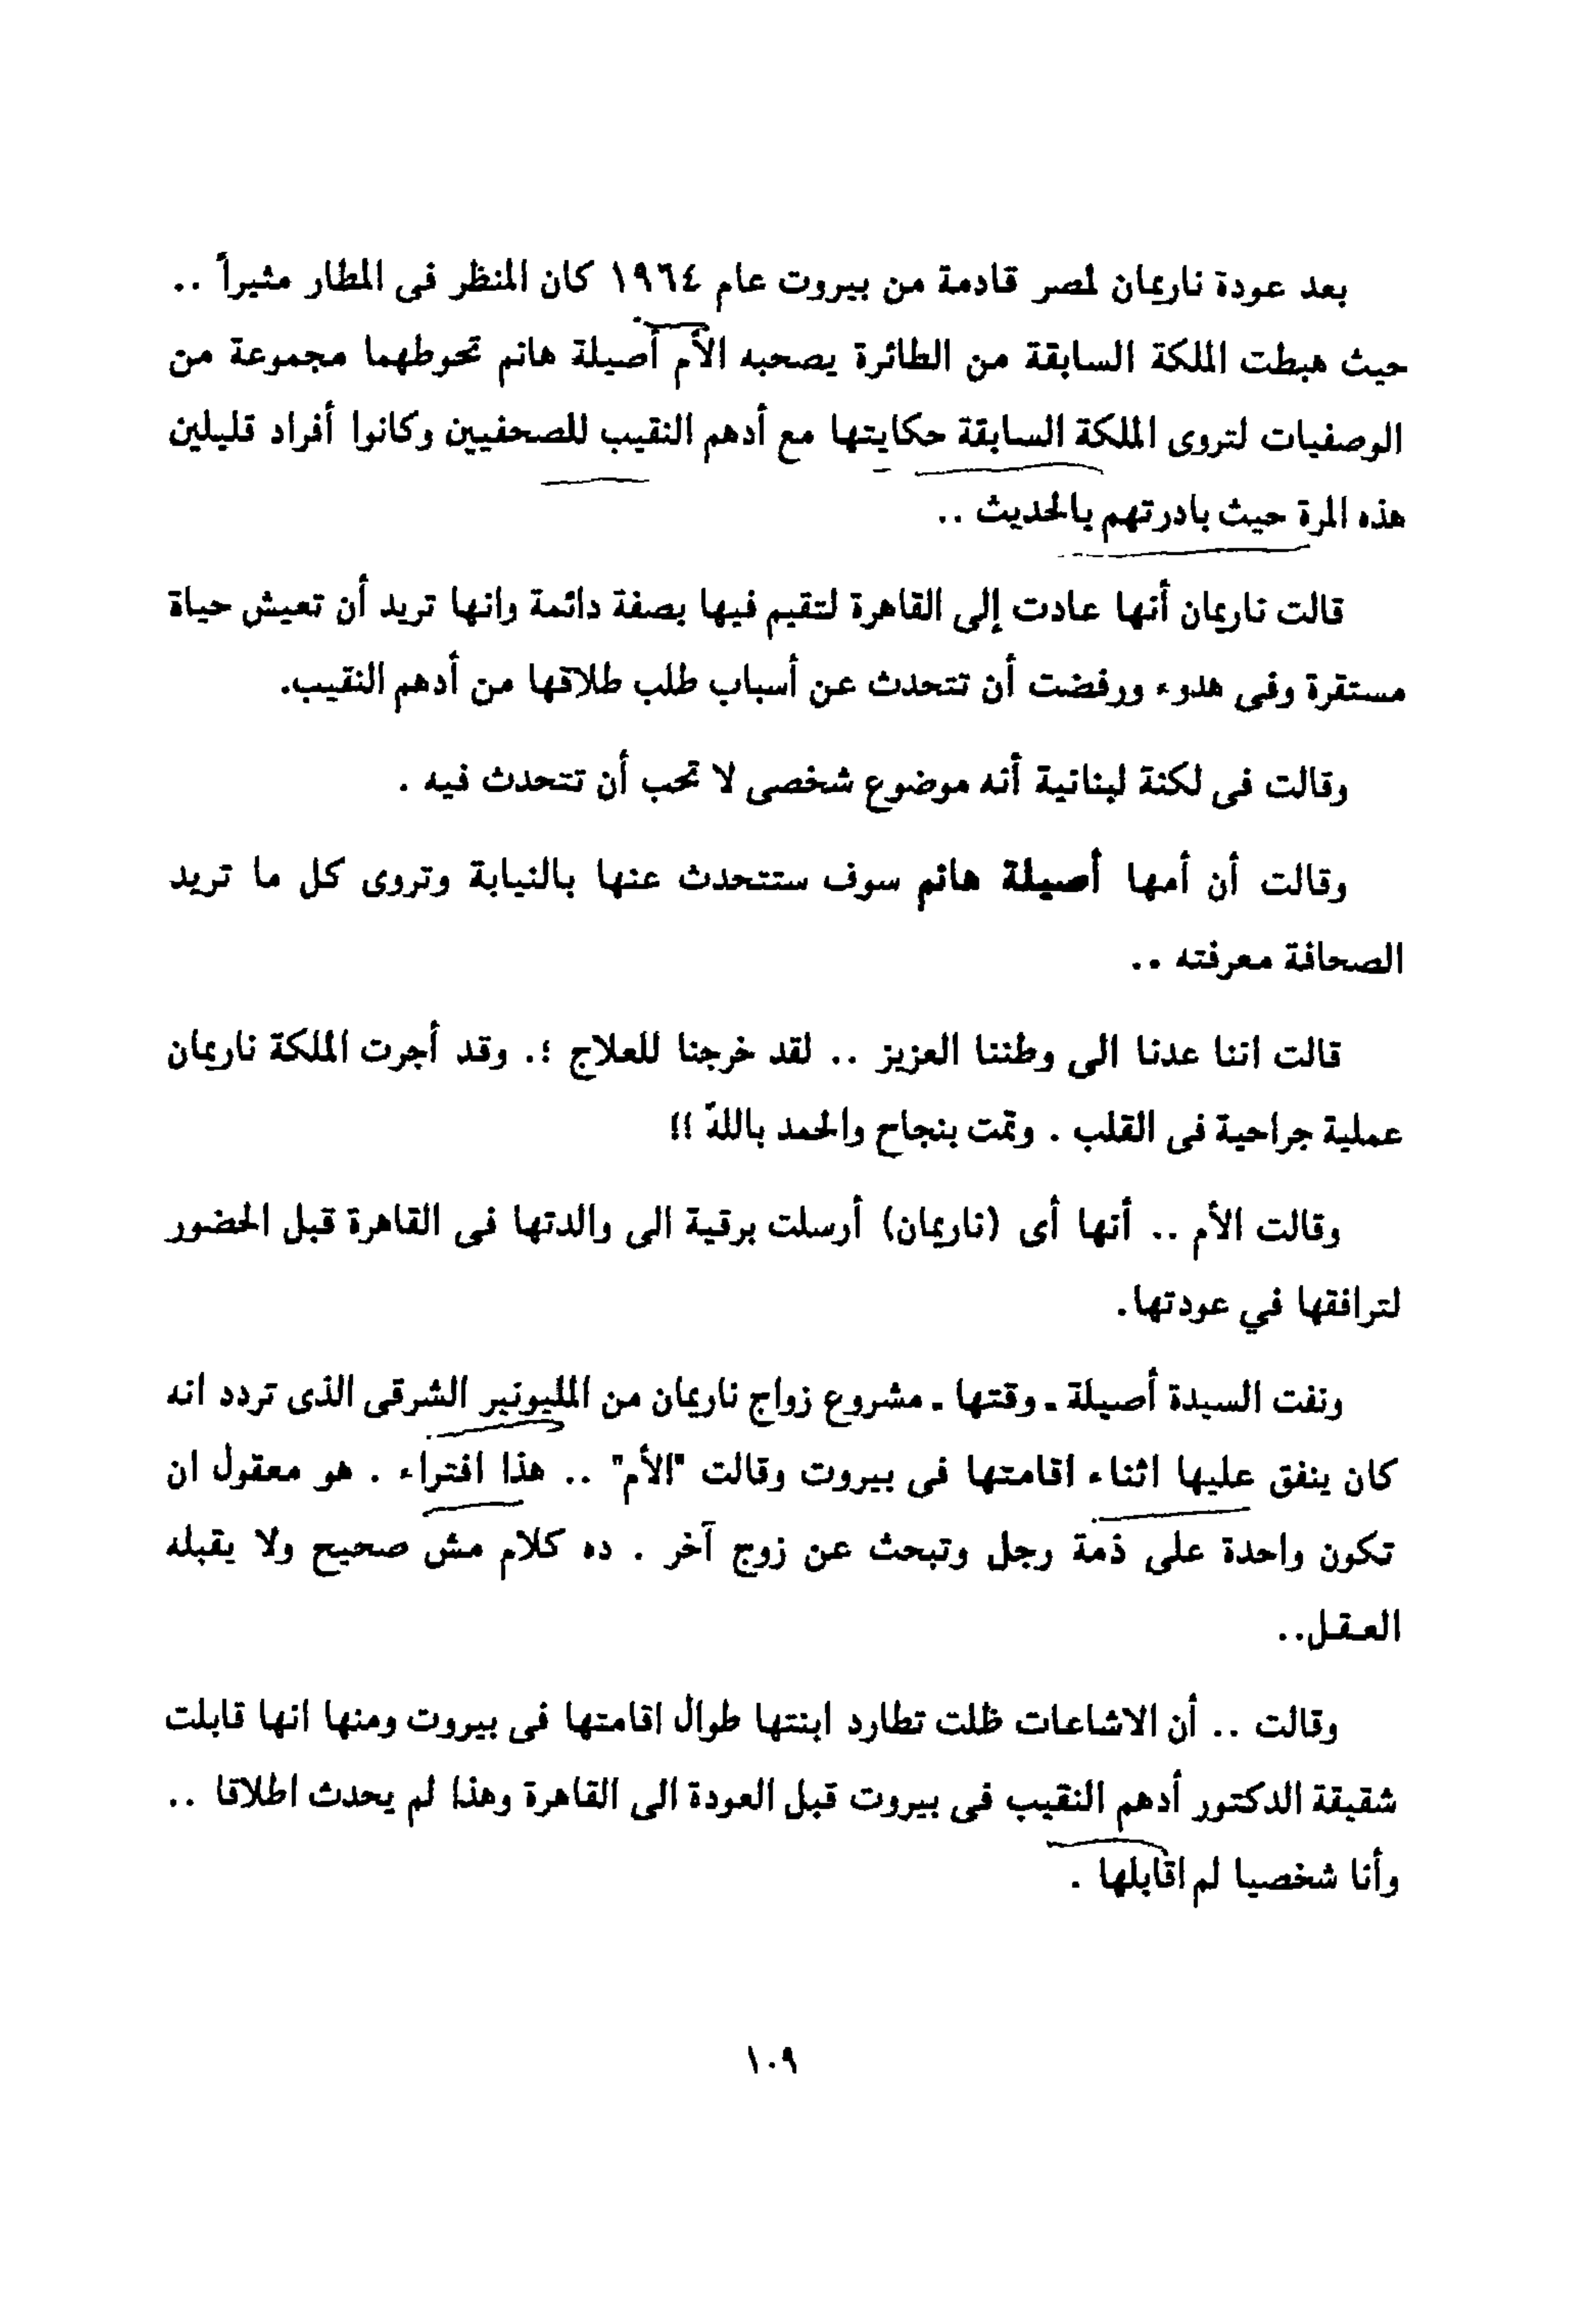 بعد عودة ناريمان لمصر قادمة من بيروت عام ١٩٦٤ كان المنظر فى المطار مثيراً ..
حيث هبطت الملكة السابقة من الطائرة يصحبه الأم أصيلة هانم تحوطهما مجموعة من
الوصفيات لتروى الملكة السابقة حكايتها مع أدهم النقيب للصحفيين وكانوا أفراد قليلين
هذه المرة حيث بادرتهم بالحديث ..
قالت ناريمان أنها عادت إلى القاهرة لتقيم فيها بصفة دائمة وانها تريد أن تعيش حياة
مستقرة وفى هدوء ورفضت أن تتحدث عن أسباب طلب طلاقها من أدهم النقيب.
وقالت فى لكنة لبنانية أنه موضوع شخصى لا تحب أن تتحدث فيه .
وقالت أن أمها أصيلة هانم سوف ستتحدث عنها بالنيابة وتروى كل ما تريد
الصحافة معرفته ..
قالت اننا عدنا الى وطننا العزيز .. لقد خرجنا للعلاج ؛. وقد أجرت الملكة ناريمان
عملية جراحية فى القلب . وتمت بنجاح والحمد باللّه !!
وقالت الأم .. أنها أى (ناريمان) أرسلت برقية الى والدتها فى القاهرة قبل الحضور
لترافقها في عودتها.
ونفت السيدة أصيلة ـ وقتها ـ مشروع زواج ناريمان من المليونير الشرقى الذى تردد انه
كان ينفق عليها اثناء اقامتها فى بيروت وقالت "الأم" .. هذا افتراء . هو معقول ان
تكون واحدة على ذمة رجل وتبحث عن زوج آخر . ده كلام مش صحيح ولا يقبله
العقل..
وقالت .. أن الاشاعات ظلت تطارد ابنتها طوال اقامتها فى بيروت ومنها انها قابلت
شقيقة الدكتور أدهم النقيب فى بيروت قبل العودة الى القاهرة وهذا لم يحدث اطلاقا ..
وأنا شخصيا لم اقابلها .
١٠٩